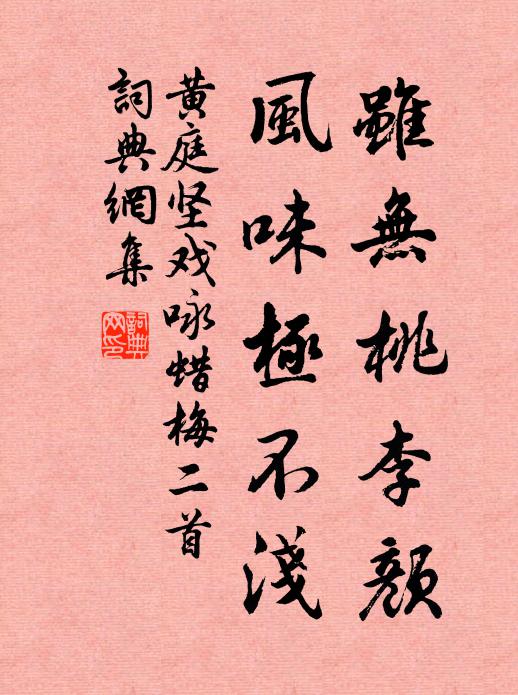 雖無桃李顏
風味極不淺
黄庭坚戏咏蜡梅二首
詞典網集
詞典網印